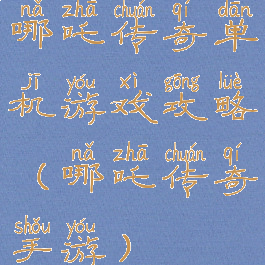 nǎ zhā chuán qí dān
哪吒传奇单
jī yóu xì gōng lüè
机游戏攻略
nǎ zhā chuán qí
(哪吒传奇
shǒu yóu
手游)